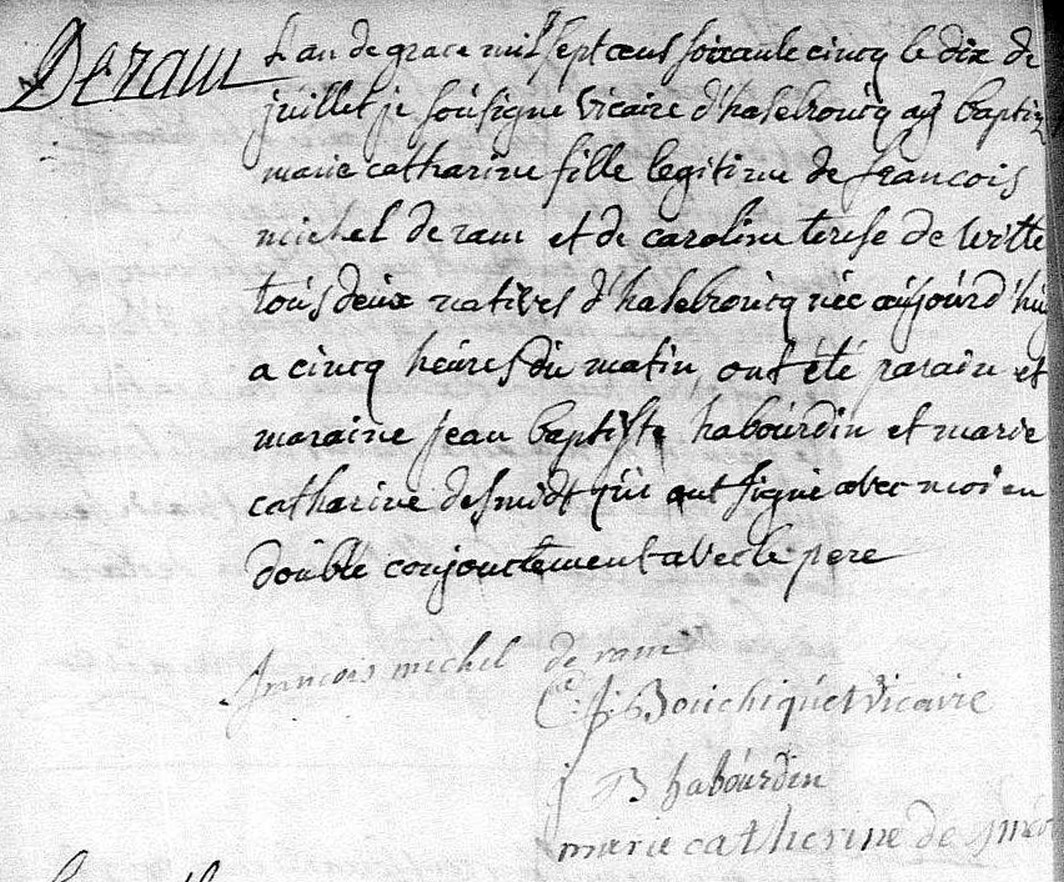 Deram
L'an de grace mil sept cens soixante cincq le dix de
juillet je soùsigné vicaire d'hasebroùcq ay baptizé
marie catharine fille legitime de francois
michel de ram et de caroline terese de witte
toùs deùx natives d'hasebroùcq née aùjoùrd'huy
a cincq heùres dù matin, ont été parain et
maraine jean baptiste haboùrdin et marie
catharine desmidt qùi ont signé avec moi en
doùble conjonctement avec le pere
francois michel de ram
Boùchiqùet vicaire
j B haboùrdin
marie catherine de smidt